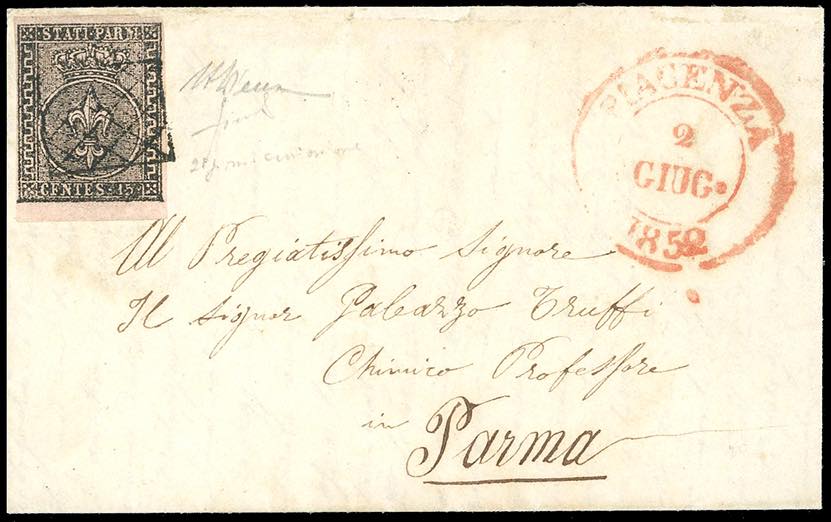 STATI PARM.
CENTES. 15
PIACENZA
2
GIUG.
1852
Al Pregiatissimo Signore
Il Signor Galeazzo Truffi
Chimico Professore
in
Parma